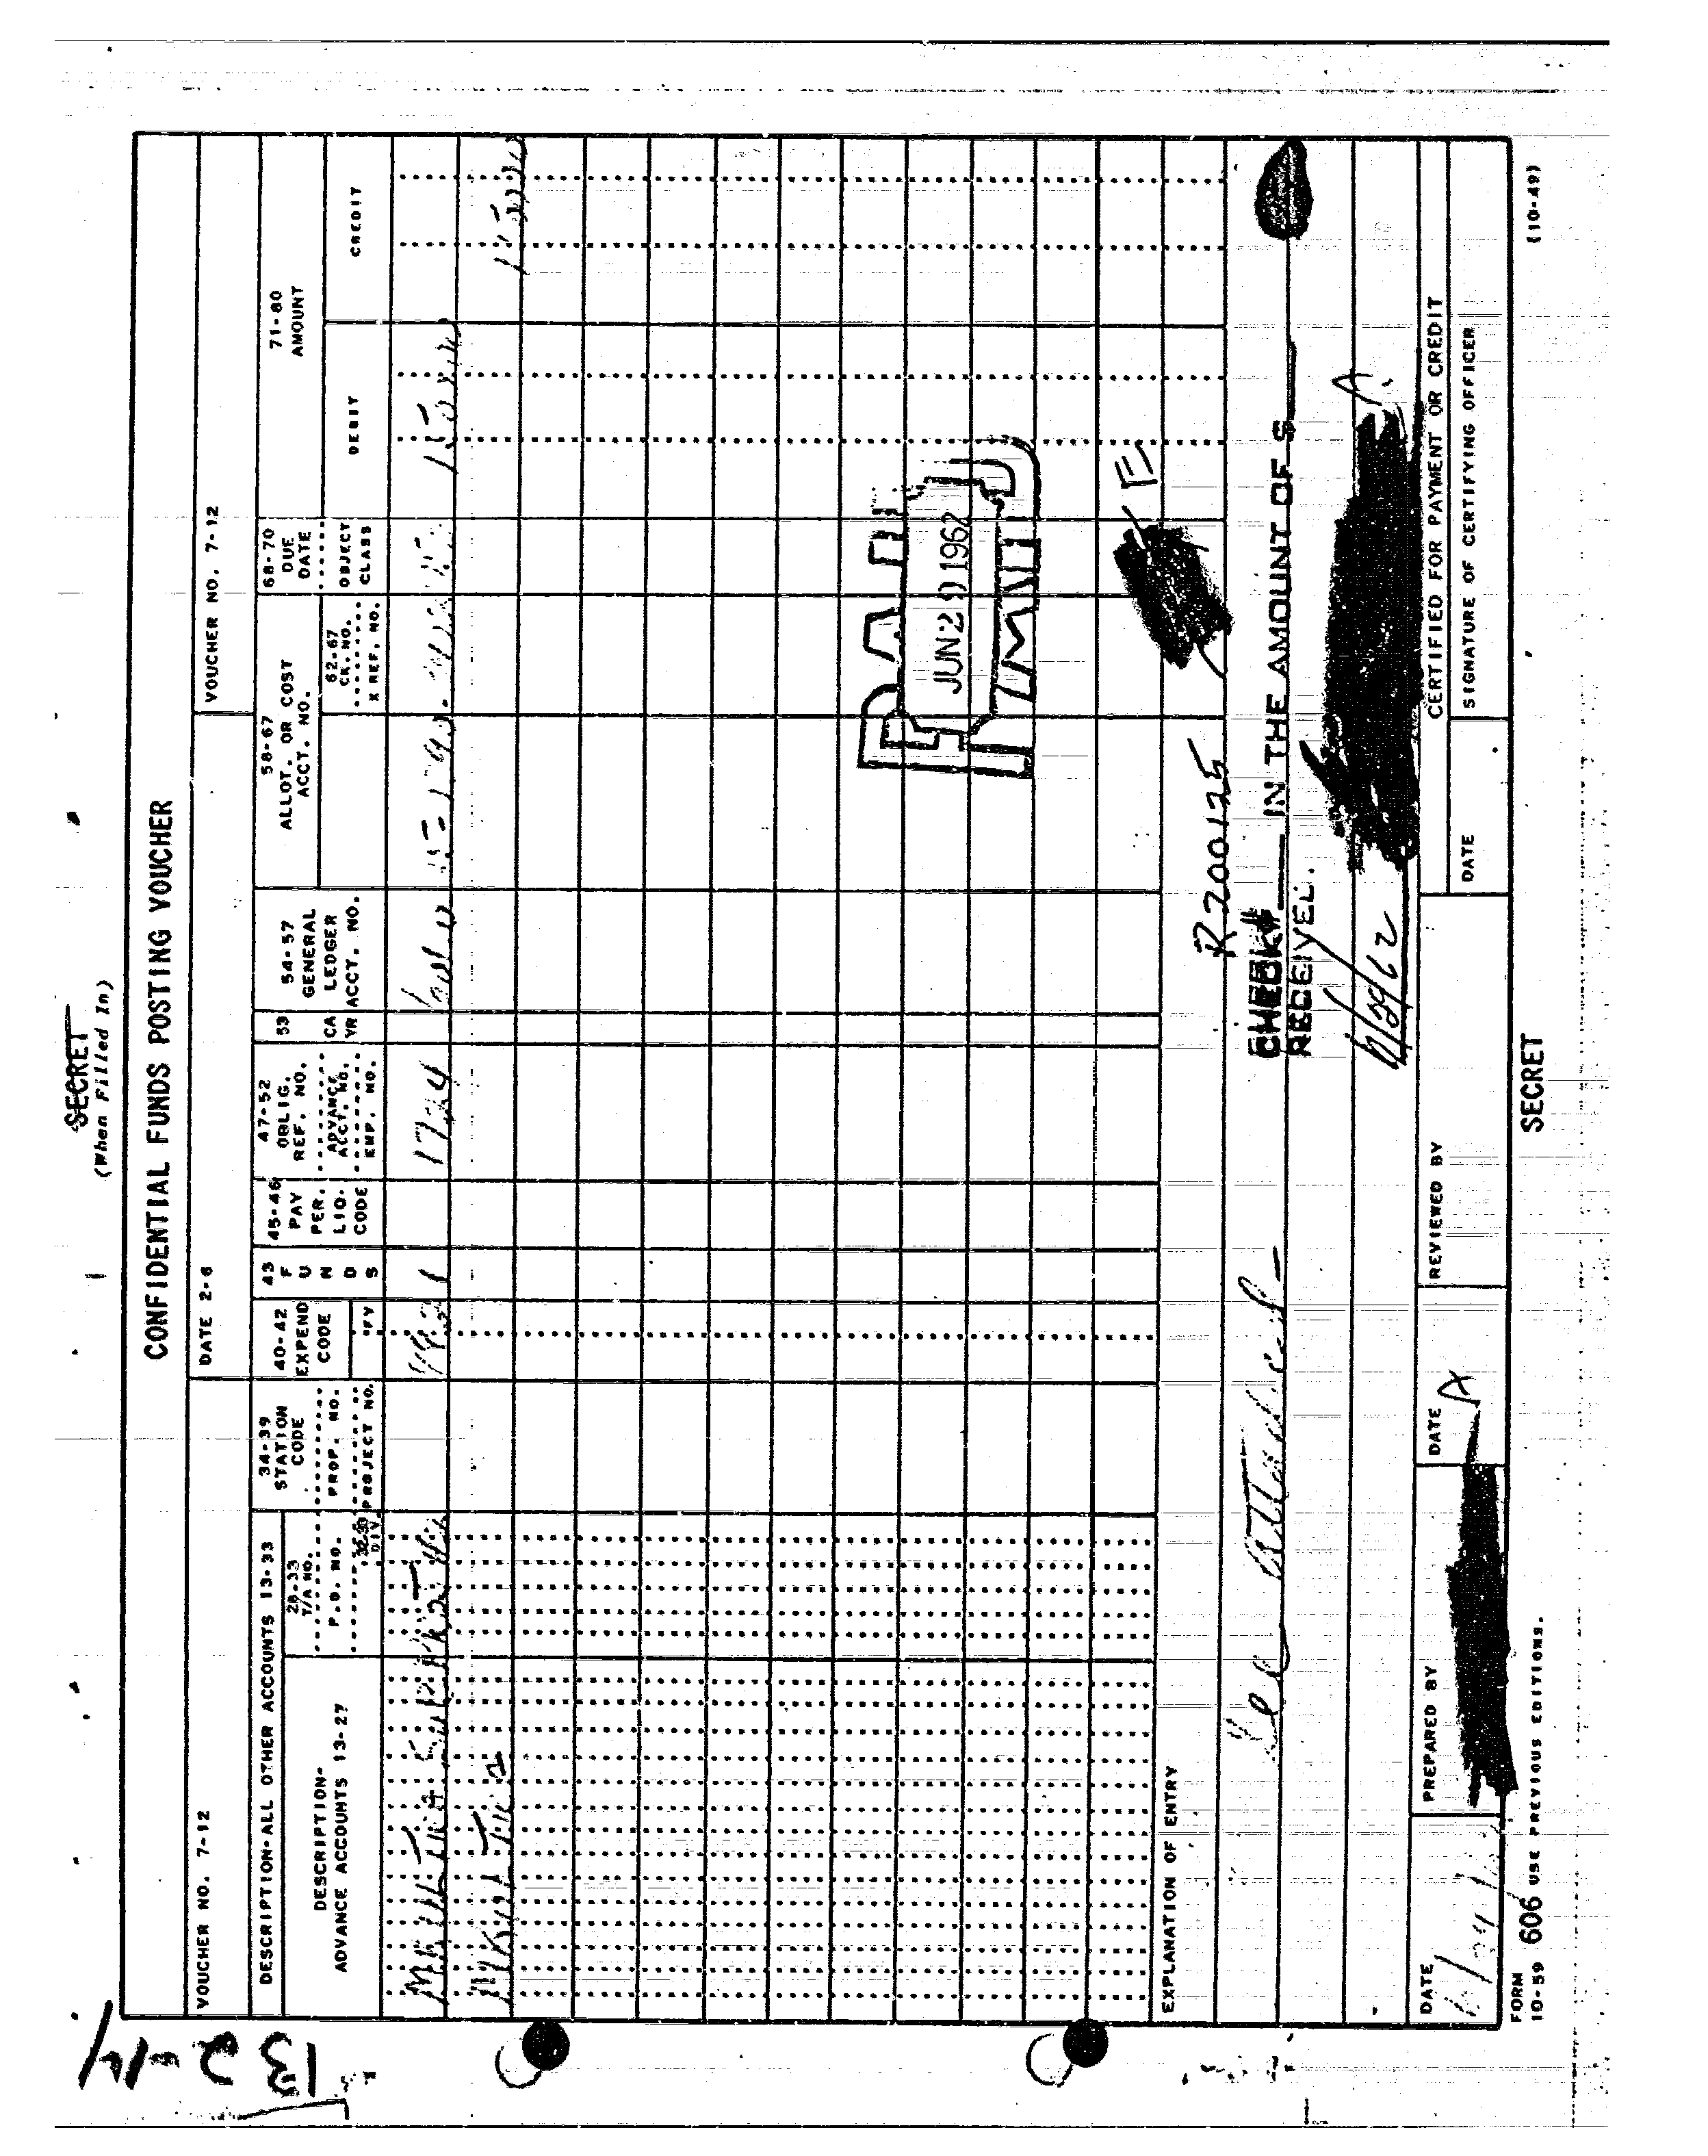 SECRET
(When Filled In)
CONFIDENTIAL FUNDS POSTING VOUCHER
VOUCHER NO. 7-12
DATE 2-6
VOUCHER NO. 7-12
DESCRIPTION-ALL OTHER ACCOUNTS 13-33
DESCRIPTION-
ADVANCE ACCOUNTS 13-27
28-33
T/A NO.
P.O. NO.
DIV
34-39
STATION
CODE
PROP. NO.
PROJECT NO.
40-42
EXPEND
CODE
FY
43
F
U
N
D
S
45-46
PAY
PER.
LIQ.
CODE
47-52
OBLIG.
REF. NO.
ADVANCE
ACCT. NO.
EMP. NO.
53
CA
YR
54-57
GENERAL
LEDGER
ACCT. NO.
58-67
ALLOT. OR COST
ACCT. NO.
62-67
CK. NO.
X REF. NO.
68-70
DUE
DATE
OBJECT
CLASS
71-80
AMOUNT
DEBIT
CREDIT
1724
PAID
JUN 29 1962
E
EXPLANATION OF ENTRY
R200125
See attached
CHECK# IN THE AMOUNT OF $
RECEIVED.
6/29/62
A.
DATE
PREPARED BY
DATE
A
REVIEWED BY
CERTIFIED FOR PAYMENT OR CREDIT
DATE
SIGNATURE OF CERTIFYING OFFICER
FORM
10-59 606 USE PREVIOUS EDITIONS.
SECRET
(10-49)
13 2-14